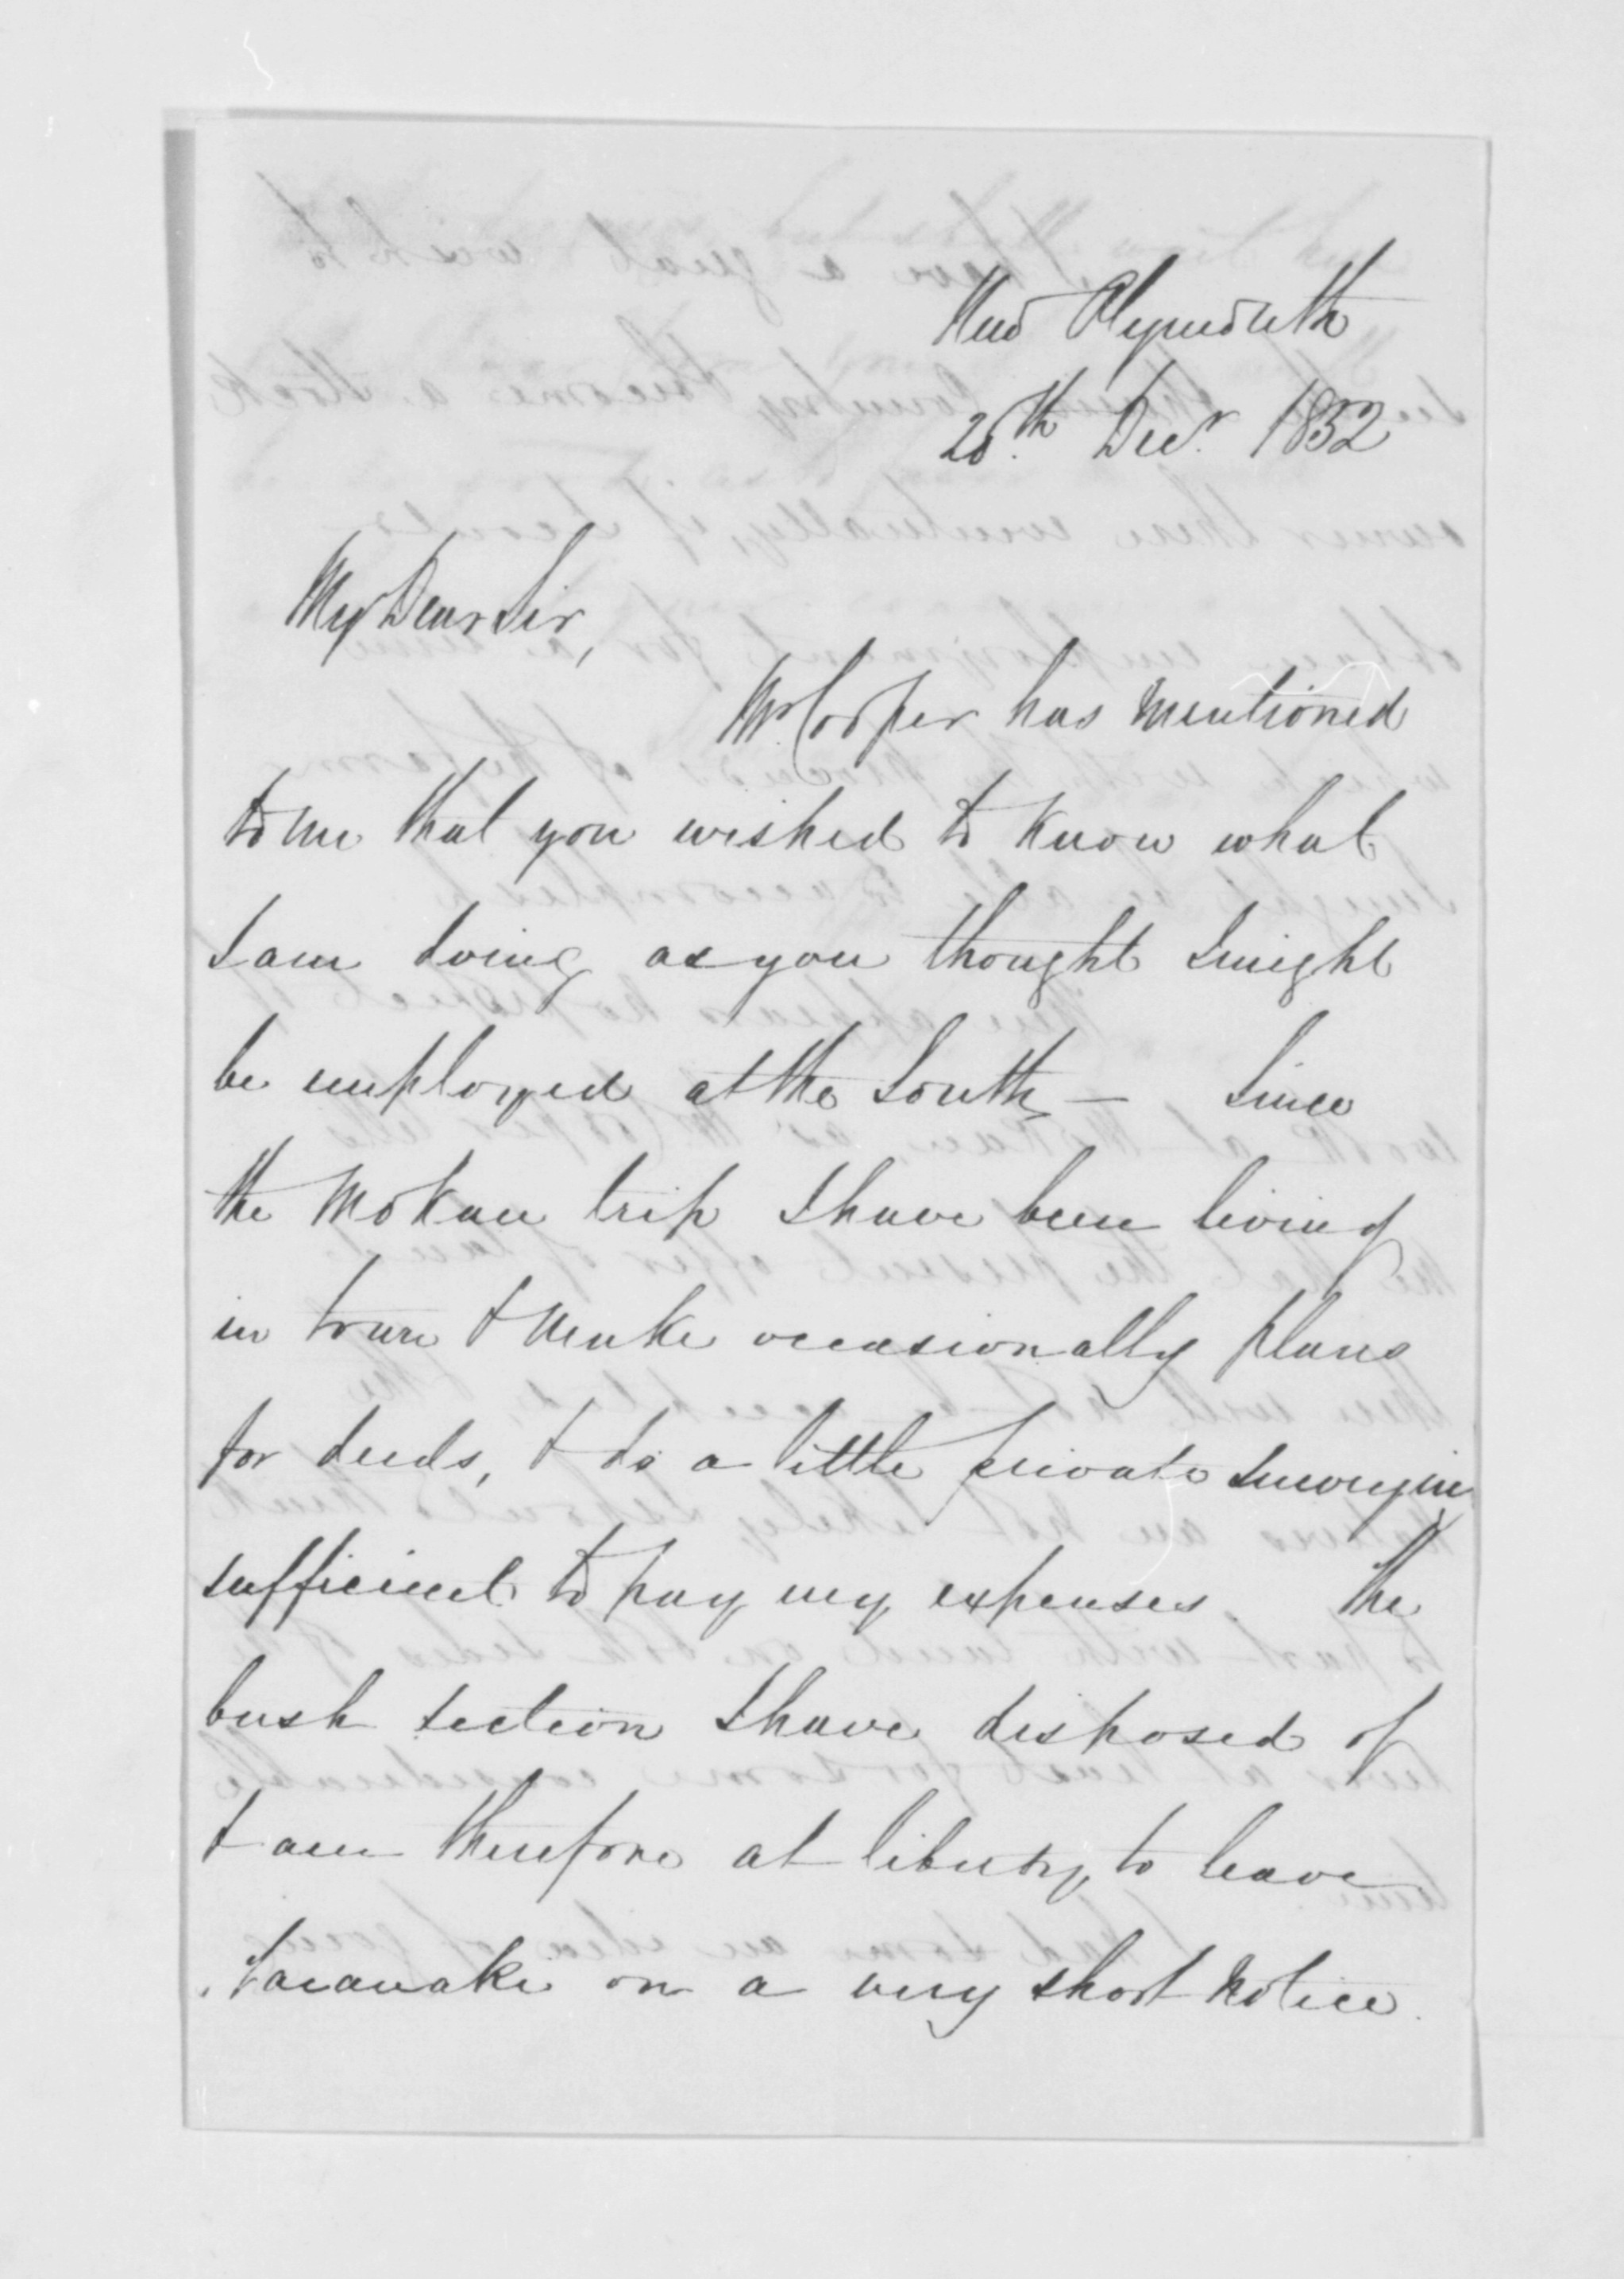 New Plymouth
20th. Decr. 1852
My Dear Sir,
Mr. Cooper has mentioned
to me that you wished to know what
I am doing as you thought I might
be employed at the South — Since
the Mokau trip I have been living
in town & make occasionally plans
for deeds, & do a little private surveying
sufficient to pay my expenses. The
bush section I have disposed of
& am therefore at liberty to leave
Taranaki on a very short notice.